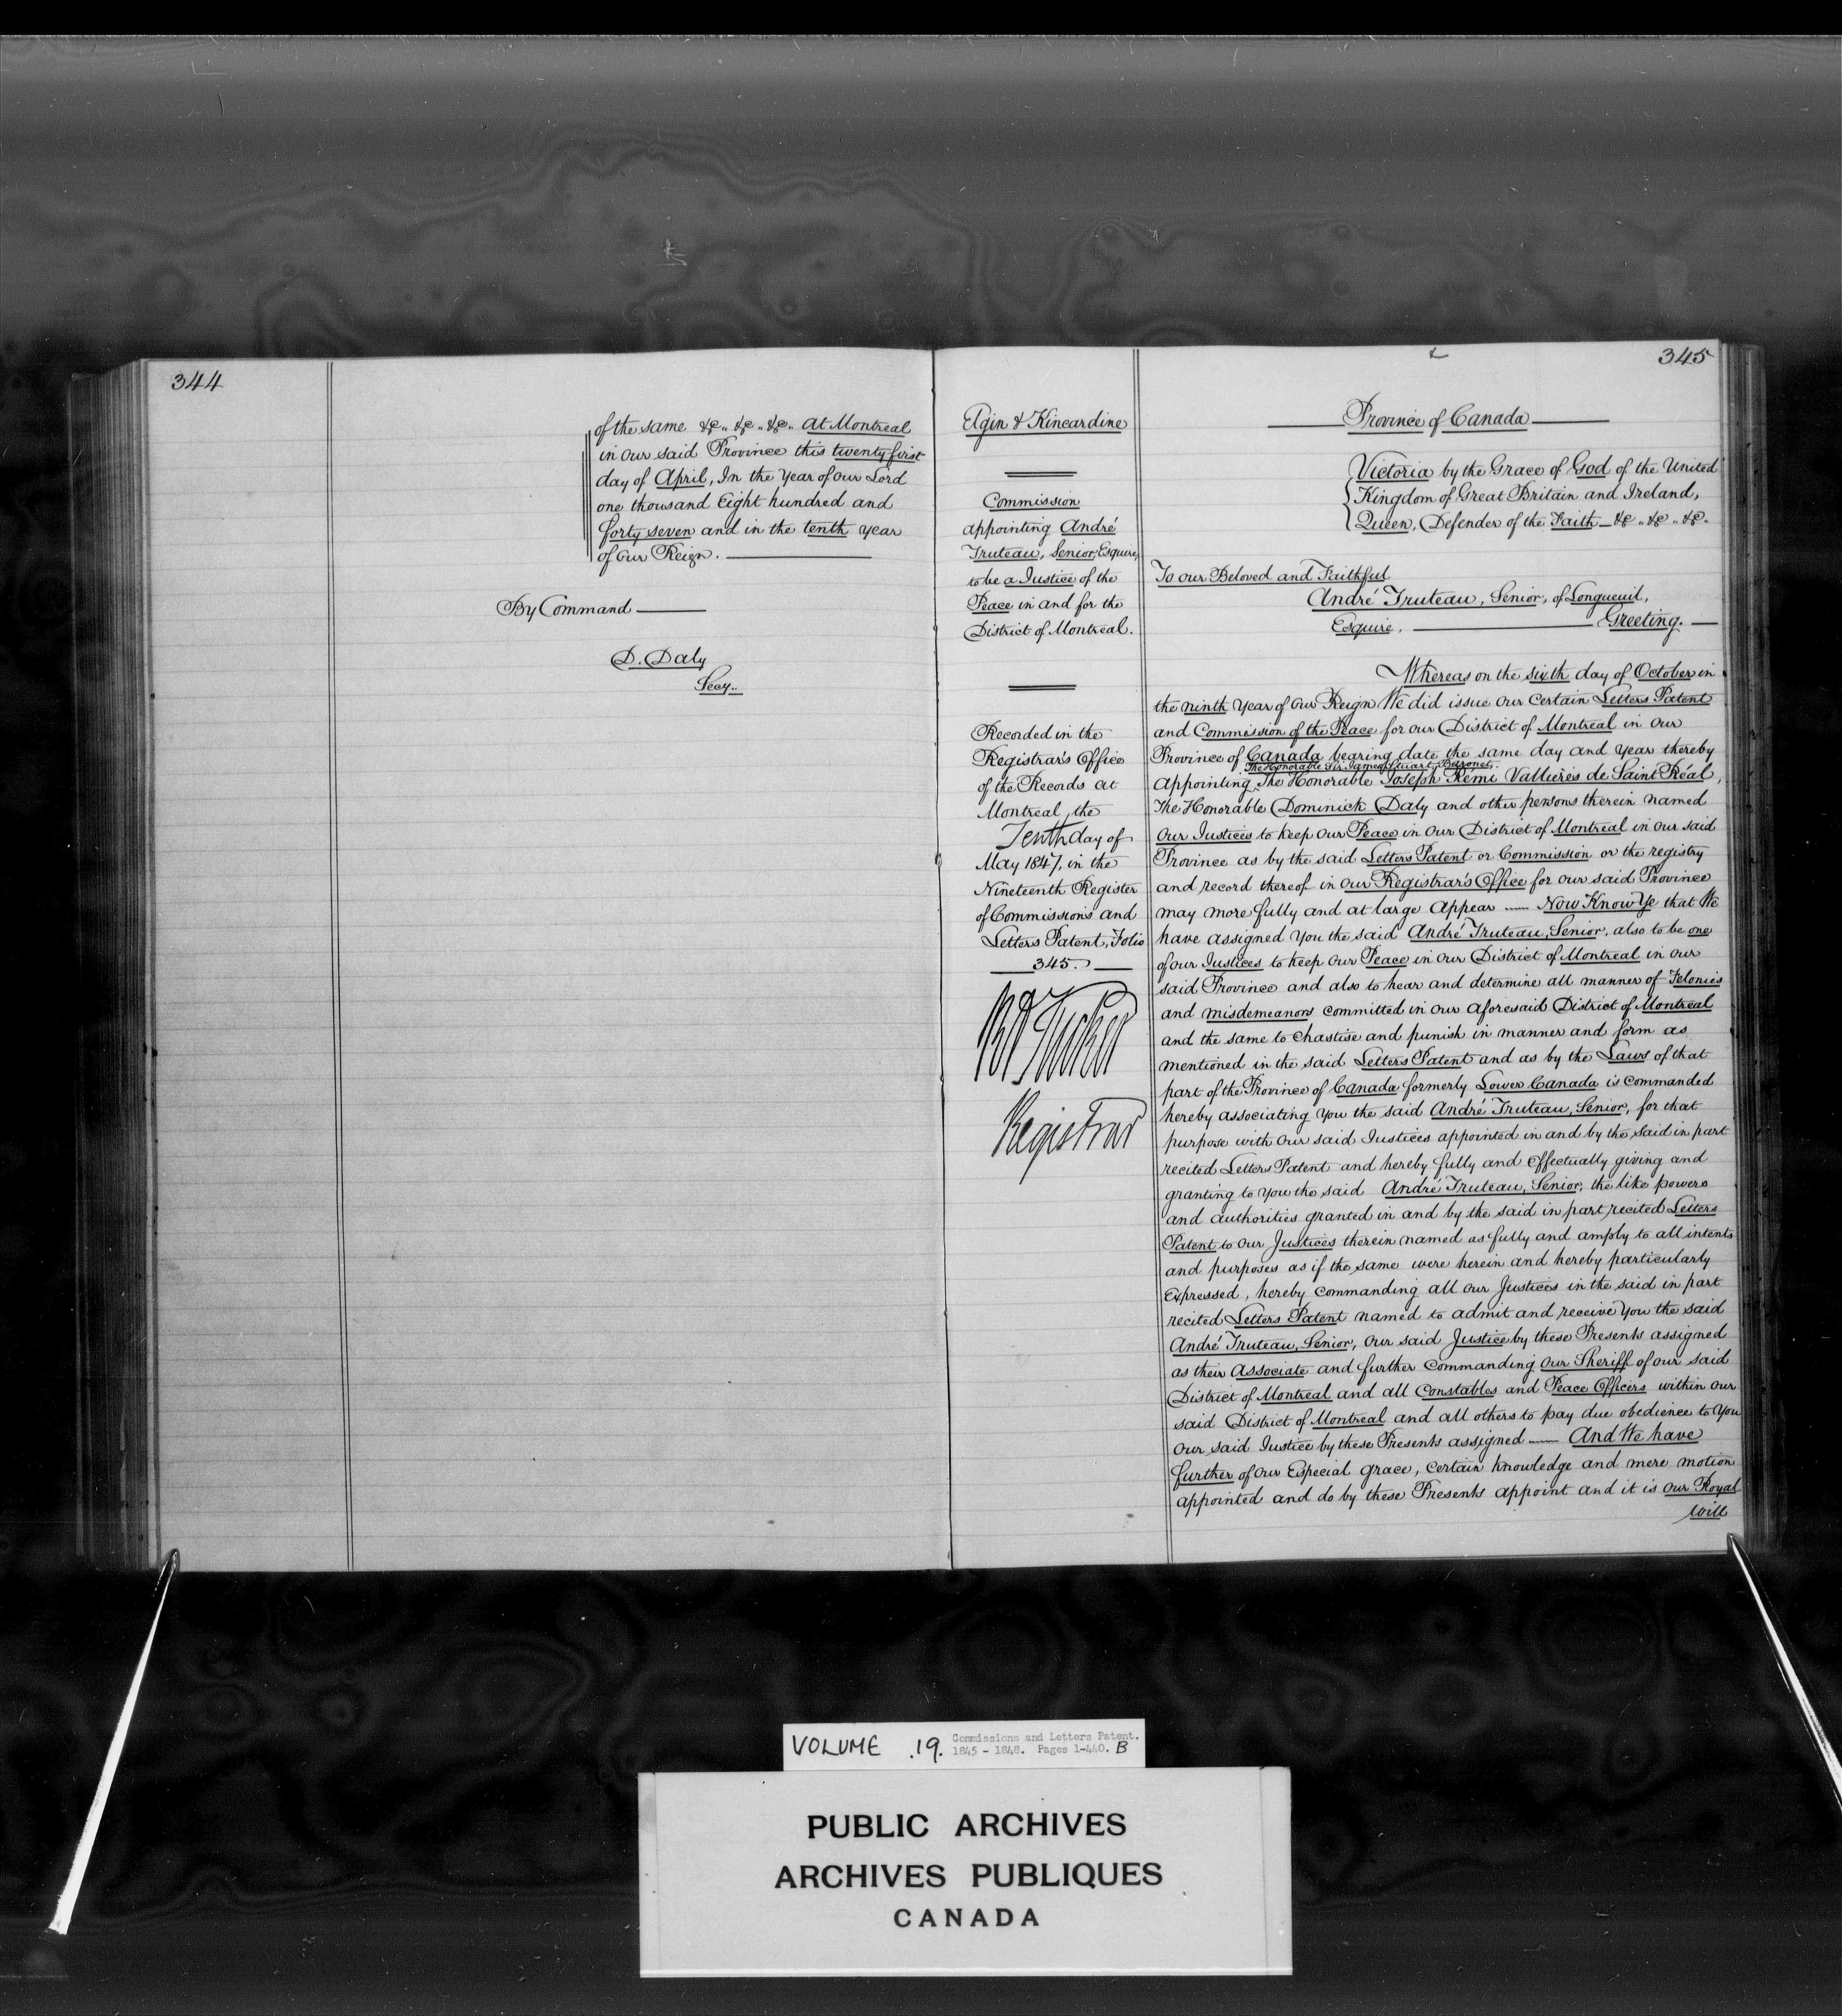 344
of the same &c.. &c.. &c.. at Montreal
in our said Province this twenty first
day of April, In the Year of our Lord
one thousand Eight hundred and
forty seven and in the tenth year
of Our Reign.
By Command
D. Daly
Secy..
345
Elgin & Kincardine
Commission
appointing André
Truteau, Senior, Esquire,
to be a Justice of the
Peace in and for the
District of Montreal.
Recorded in the
Registrar's Office
of the Records at
Montreal, the
Tenth day of
May 1847, in the
Nineteenth Register
of Commissions and
Letters Patent, Folio
345.
Tucker
Registrar
Province of Canada
Victoria by the Grace of God of the United
Kingdom of Great Britain and Ireland,
Queen, Defender of the Faith &c.. &c.. &c..
To our Beloved and Faithful
André Truteau, Senior, of Longueuil,
Esquire, Greeting.
Whereas on the sixth day of October in
the ninth Year of Our Reign We did issue our certain Letters Patent
and Commission of the Peace for our District of Montreal in our
Province of Canada bearing date the same day and Year thereby
The Honorable Sir James Stuart, Baronet,
appointing The Honorable Joseph Remi Vallieres de Saint Réal,
The Honorable Dominick Daly and other persons therein named
our Justices to keep our Peace in our District of Montreal in our said
Province as by the said Letters Patent or Commission or the registry
and record thereof in our Registrar's Office for our said Province
may more fully and at large Appear — Now Know Ye that We
have assigned You the said André Truteau, Senior, also to be one
of our Justices to keep Our Peace in our District of Montreal in our
said Province and also to hear and determine all manner of Felonies
and misdemeanors committed in our aforesaid District of Montreal
and the same to Chastise and punish in manner and form as
mentioned in the said Letters Patent and as by the Laws of that
part of the Province of Canada formerly Lower Canada is commanded
hereby associating You the said André Truteau, Senior, for that
purpose with our said Justices appointed in and by the said in part
recited Letters Patent and hereby fully and effectually giving and
granting to You the said André Truteau, Senior, the like powers
and authorities granted in and by the said in part recited Letters
Patent to our Justices therein named as fully and amply to all intents
and purposes as if the same were herein and hereby particularly
Expressed, hereby commanding all our Justices in the said in part
recited Letters Patent named to admit and receive You the said
André Truteau, Senior, our said Justice by these Presents assigned
as their Associate and further commanding our Sheriff of our said
District of Montreal and all Constables and Peace Officers within our
said District of Montreal and all others to pay due obedience to You
our said Justice by these Presents assigned — And We have
further of our Especial grace, certain knowledge and mere motion
appointed and do by these Presents appoint and it is our Royal
Will
VOLUME .19. Commissions and Letters Patent.
1845 - 1848. Pages 1-440. B
PUBLIC ARCHIVES
ARCHIVES PUBLIQUES
CANADA